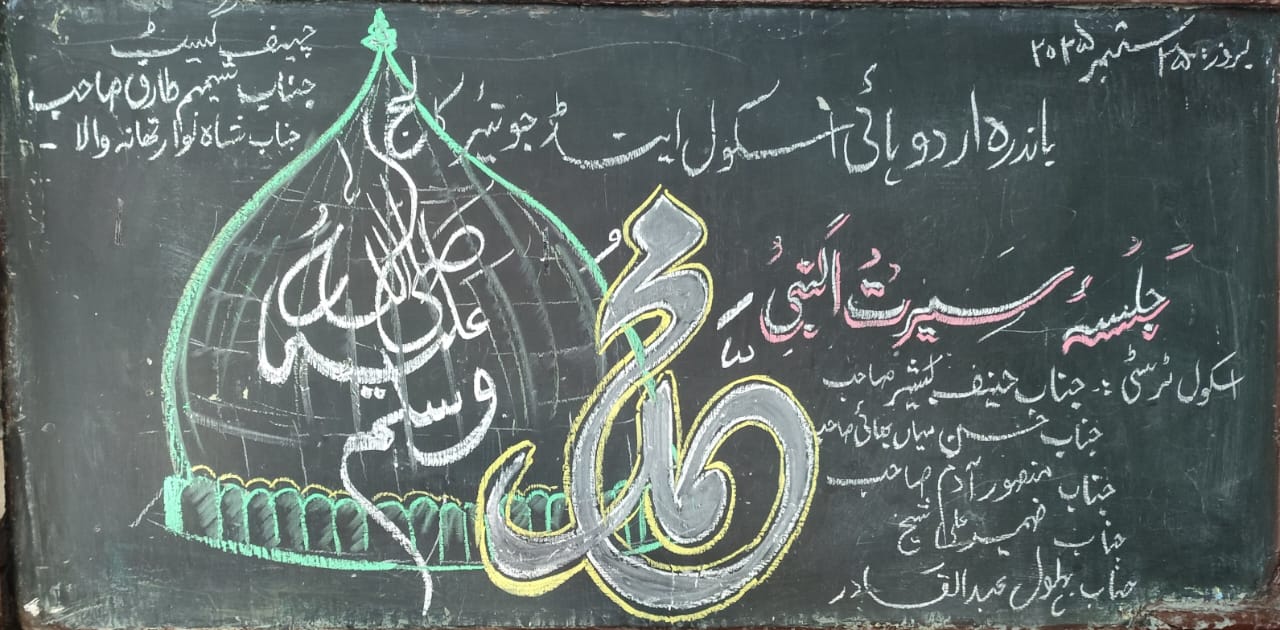 بروز: ۲۵ ستمبر ۲۰۲۵
چیف گیسٹ
جناب شمیم طارق صاحب
جناب شاہ نواز تھانہ والا -
باندرہ اردو ہائی اسکول اینڈ جونیئر کالج
جلسۂ سیرتُ النبیؐ
محمد
صلی اللہ علیہ وسلم
اسکول ٹرسٹی :- جناب حنیف کشیر صاحب
جناب حسن میاں بھائی صاحب
جناب منصور آدم صاحب
جناب فہمید علی شیخ
جناب بہلول عبدالقادر